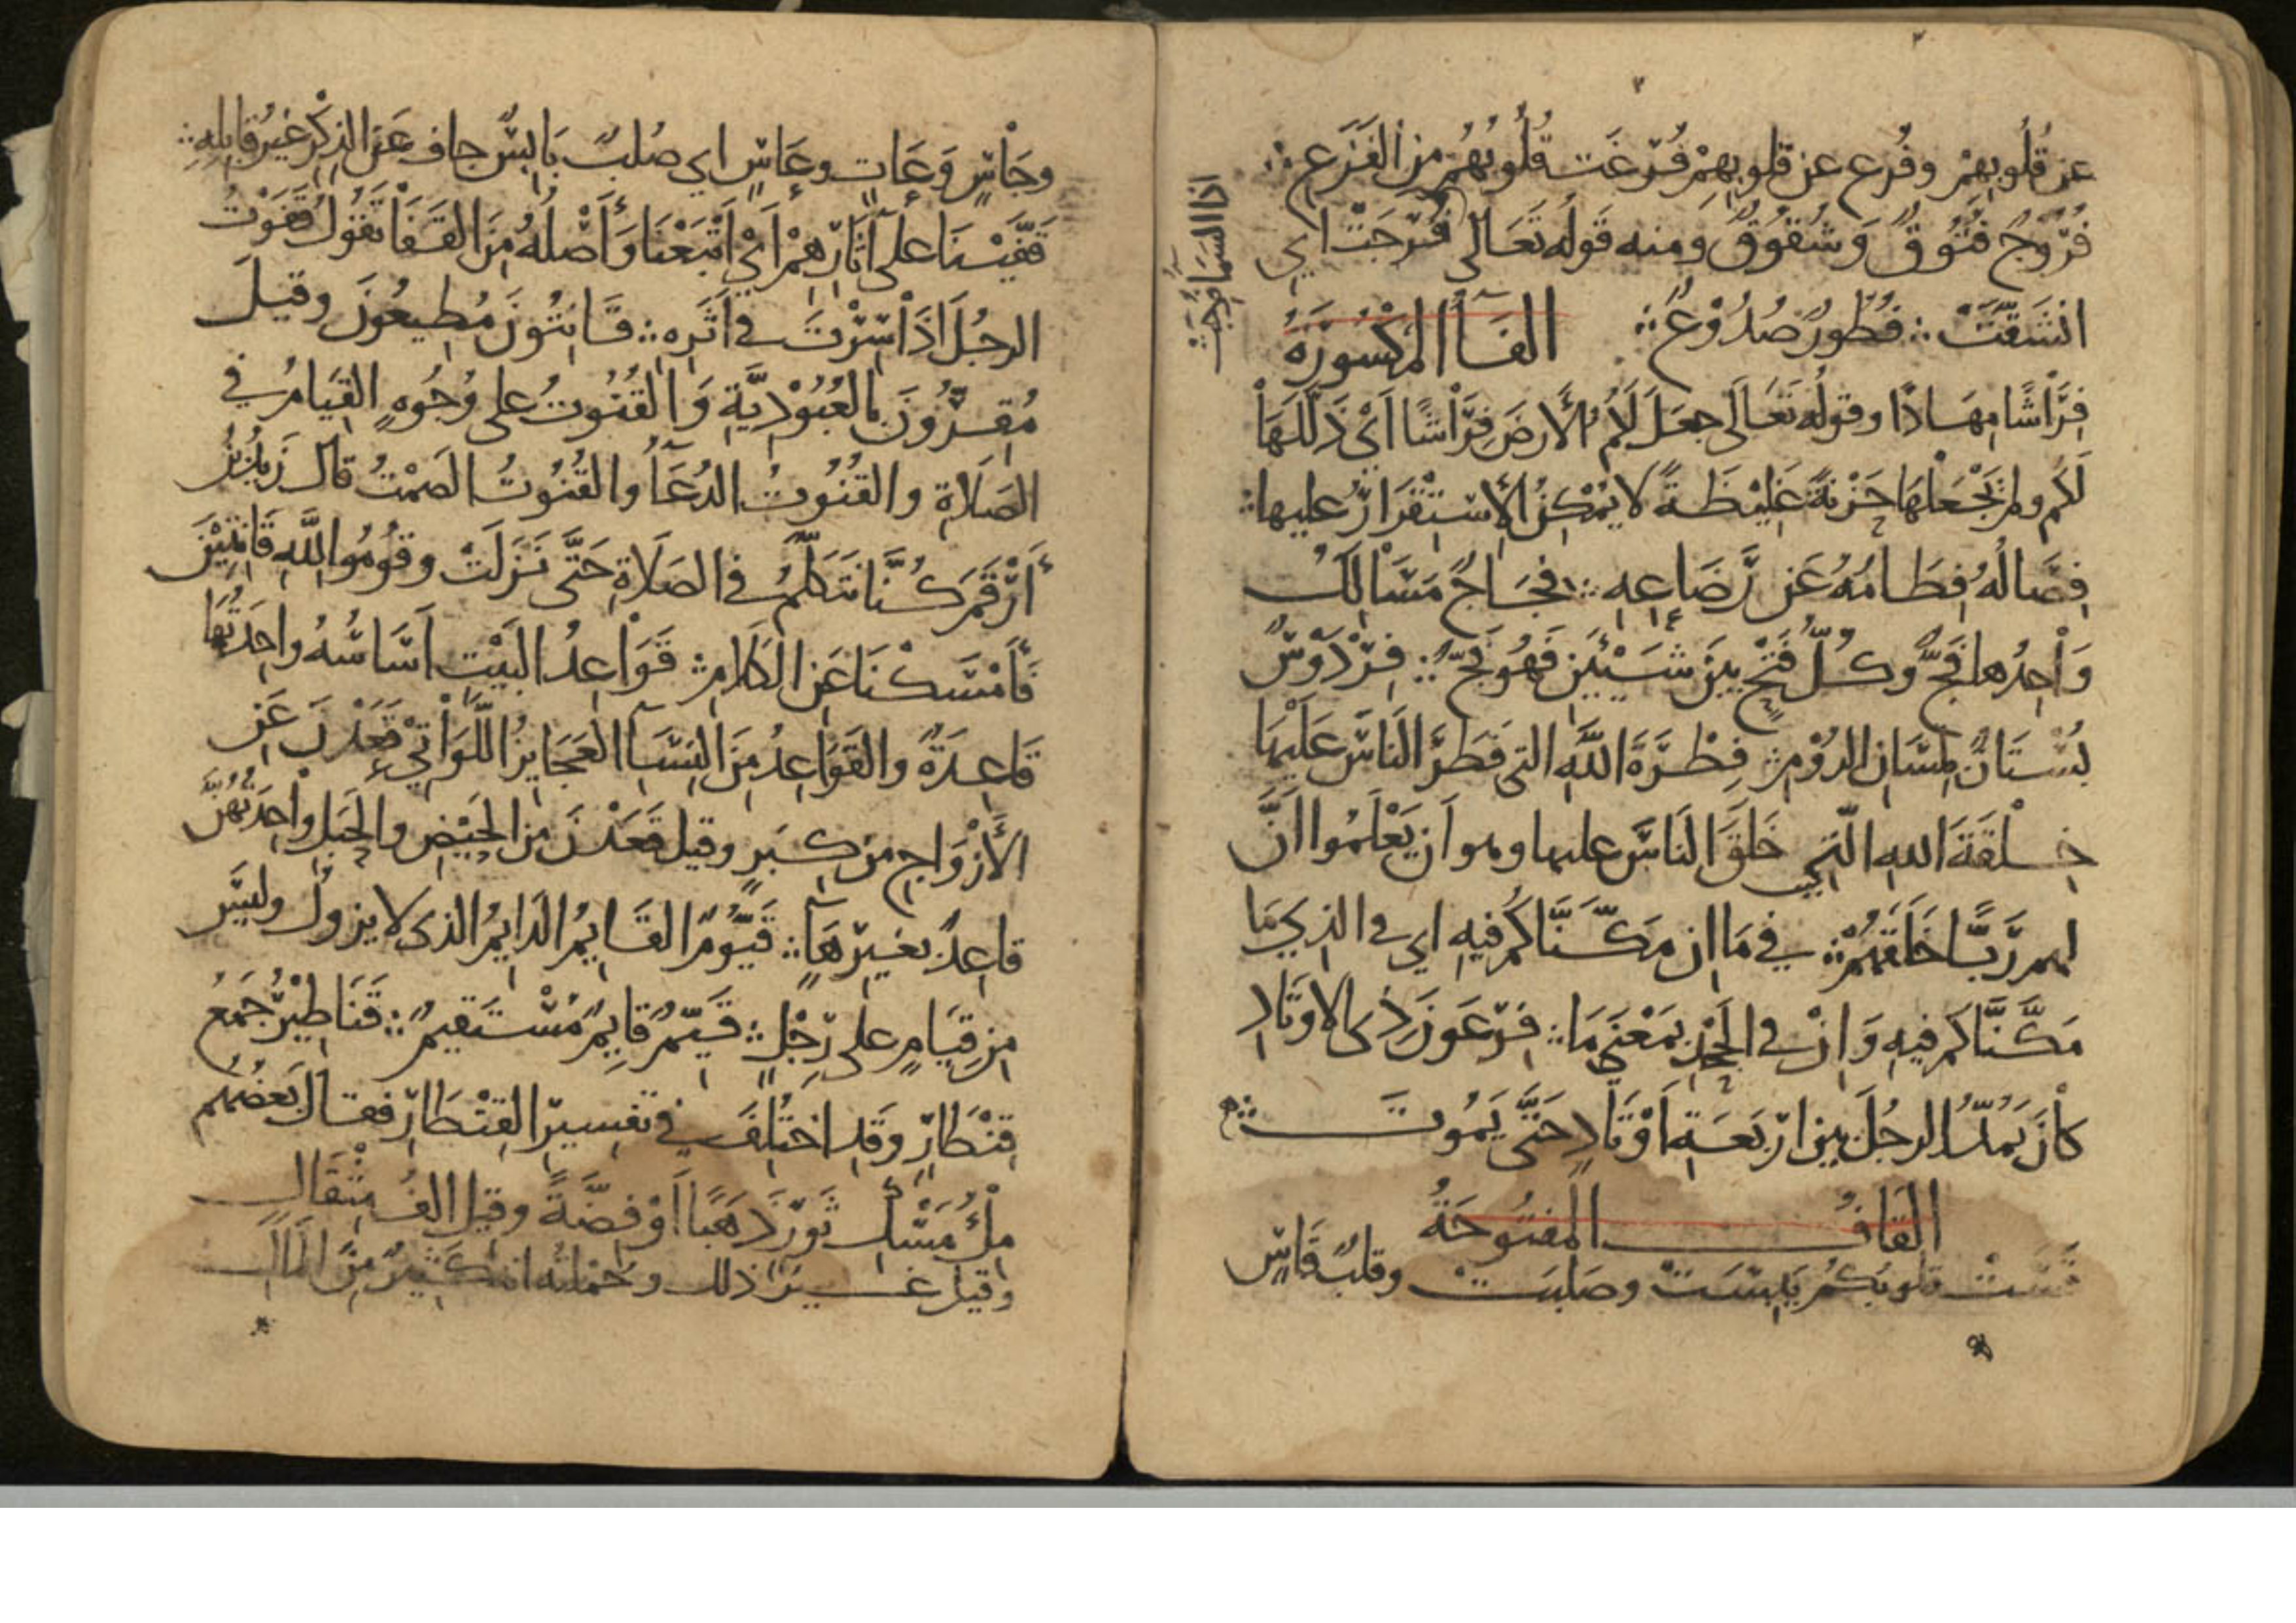 عن قُلُوبِهِمْ وفُرِع عن قلوبِهِمْ فُرِّغَت قُلُوبُهُم من الفَزَعِ ∴
فُرُوْجٌ فُتُوقٌ وَشُقُوقٌ ومنه قَولُه تَعَالى فُرِجَتْ اي
اذا السَّمَآءُ فُرِجَتْ
انشَقَّتْ ∴ فُطُورٌ صُدُوْعٌ ∴ الفَآءُ المكْسُورَةُ
فِرَاشًا مِهَادًا وقولُه تَعَالَى جعَلَ لَكُمُ الأَرضَ فِرَاشًا اَيْ ذَلَّلَهَا
لَكم ولم يَجْعَلْهَا حَزْنَةً غَلِيْظَةً لا يُمْكِنُ الأِسْتِقْرَارُ عليها ∴
فِصَالُهُ فِطَامُهُ عَن رَضَاعِهِ ∴ فِجَاجٌ مَسَالِكُ
وَاْحِدُها فَجٌّ وكُلُّ فَتْحٍ بينَ شَيْئَيْنِ فَهُو فَجٌّ ∴ فِرْدَوْسٌ
بُسْتَانٌ بلِسَانِ الرُوْمِ ∴ فِطْرَةَ اللَّهِ التي فَطَرَ النَاسَ عَلَيْهَا
خِلْقَةَ الله الَّتِي خَلَقَ النَاسَ عليها وهو اَن يَعْلَمُوا اَنَّ
لهم رَبًّا خَلَقَهُمْ ∴ في مَا ان مَكَّنَّاكُم فيهِ اي في الذِي مَا
مَكَّنَّاكم فيهِ وَاِنْ في الجَحْدِ بمَعْنَى مَا ∴ فِرْعَوْنَ ذِى الاوتَادِ
كاْنَ يَمُدُّ الرجُلَ بين ارْبَعَةِ اَوْتَادٍ حَتَّى يَمُوتَ ∴
القَافُ المفتُوحَةُ
قَسَتْ قلوبُكُمْ يَبِسَتْ وصَلبَت وقلبٌ قَاسٍ
وجَاْسٍ وَعَاتٍ وعَاسٍ اي صُلبٌ يَابِسٌ جافٍ عَنِ الذِكْرِ غيرُ قابِلِهِ ∴
قَفَّيْنَا على آثَارِهِمْ اَيْ اَتْبَعْنَا وَأَصْلُهُ مِنَ القَفَا تَقُولُ قَفَوْتُ
الرجُلَ اذَا سِرْتَ في اَثَرِهِ ∴ قَانِتُونَ مُطِيعُونَ وقيلَ
مُقِرُّونَ بالعُبُوْدِيَّةِ وَالقُنُوتُ على وُجُوهٍ القِيَامُ في
الصَلاةِ والقُنُوتُ الدُعَآءُ والقُنُوتُ الصَمْتُ قالَ زَيدُ بْنُ
أَرْقَمَ كُنَّا نَتَكَلَّمُ في الصَلاةِ حَتَّى نَزَلَتْ وقُومُوا للَّهِ قَانِتِيْنَ
فَأَمْسَكْنَا عَنِ الكَلامِ ∴ قَوَاْعِدُ البَيْتِ اَسَاسُهُ واحِدَتُهَا
قَاعِدَةٌ والقَوَاعِدُ مِنَ النِسَآءِ العَجَايِزُ اللَّوَاْتِي قَعَدْنَ عَنِ
الأَزْوَاجِ مِن كِبَرٍ وقيل قَعَدْنَ مِن الحَيْضِ والحَبَلِ واْحِدَتُهُنَّ
قاعِدٌ بغيرِ هَآءٍ ∴ قَيُّومٌ القَايِمُ الدَايِمُ الذى لا يزولُ وليسَ
مِن قِيَامٍ على رِجْلٍ ∴ قَيِّمٌ قايِمٌ مُسْتَقيمٌ ∴ قَنَاطِيْرُ جَمْعُ
قِنْطَارٍ وَقَد اختُلِفَ في تفسيرِ القِنْطَارِ فقالَ بَعضُهُم
مِلْءُ مَسْكِ ثَورٍ ذَهَبًا اَوْ فِضَّةً وقيل الفُ مِثْقَالٍ
وقيل غيرُ ذلك وجُملته انه كَثيرٌ مِنَ المَالِ